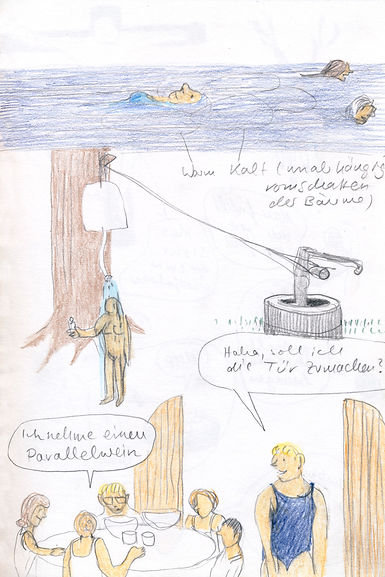 Warm Kalt (unabhängig
vom Schatten
der Bäume)
Haha, soll ich
die Tür zumachen?
Ich nehme einen
Parallelwein